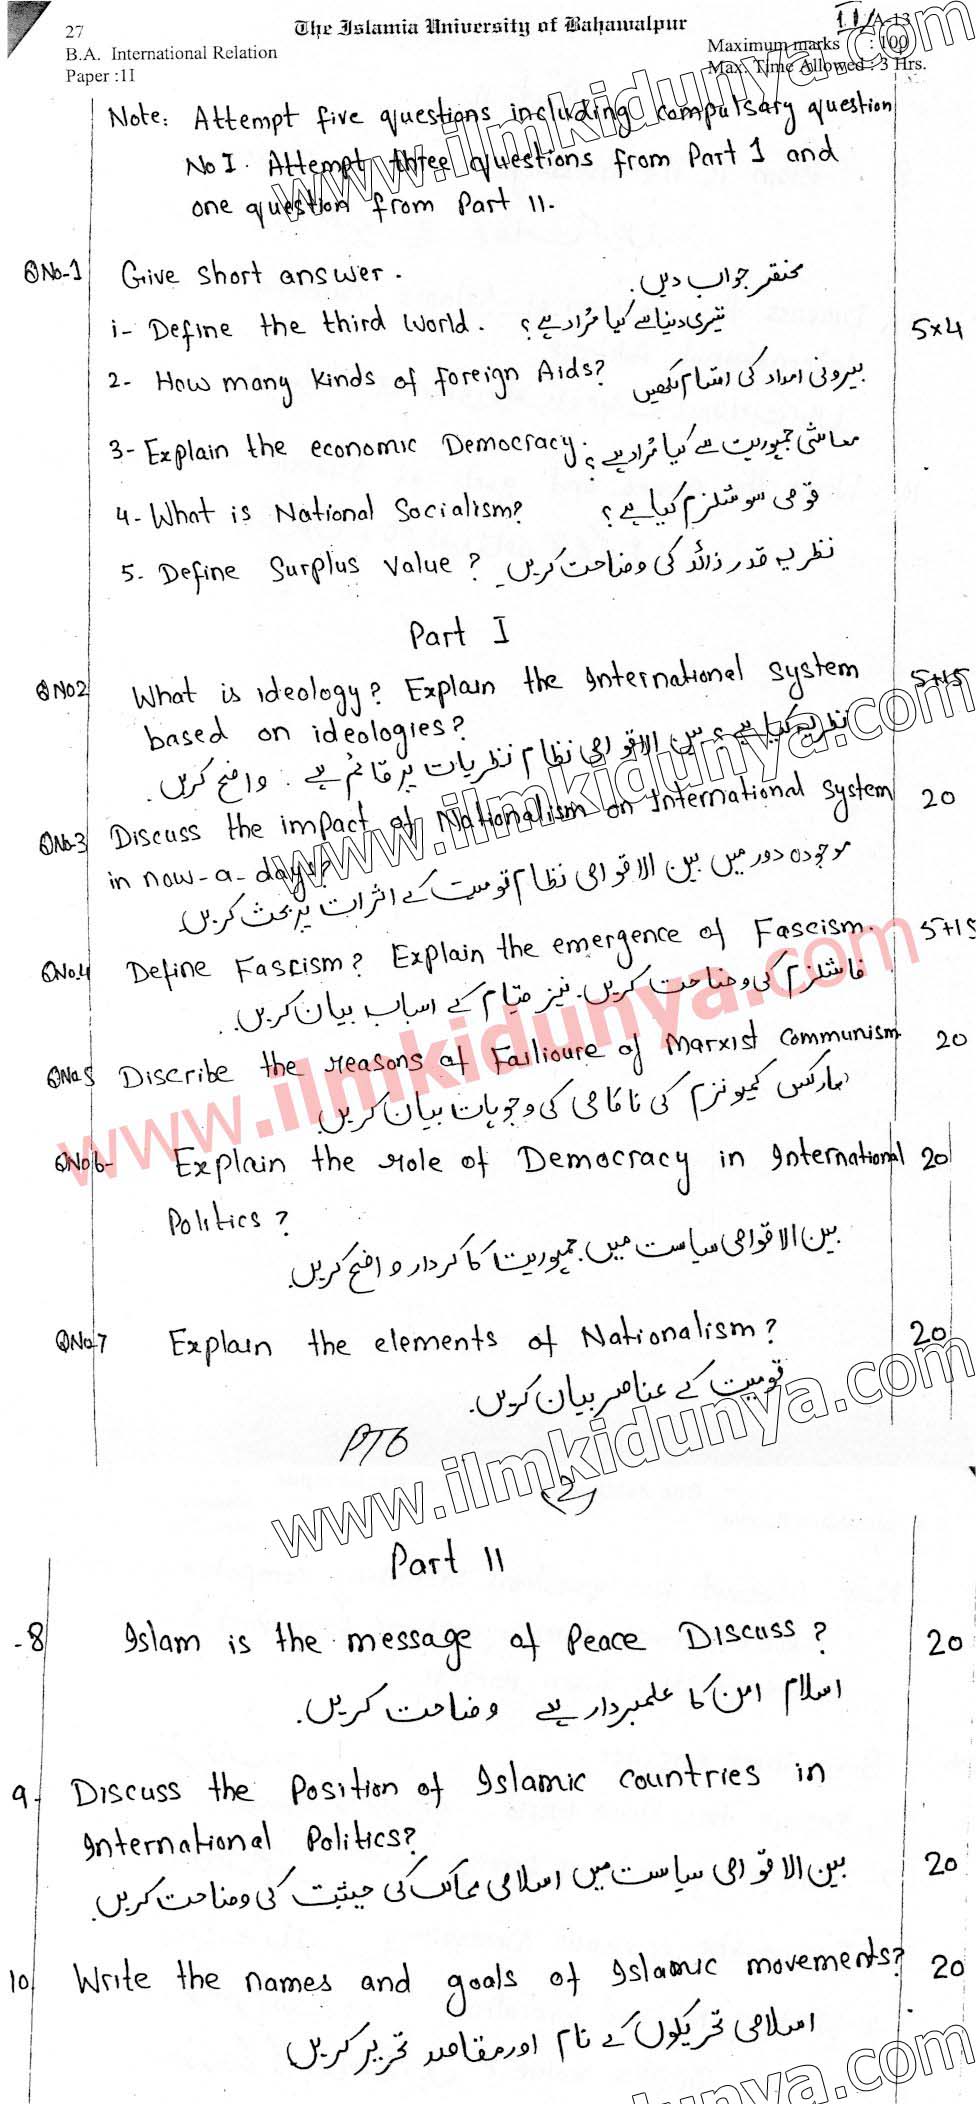 27
The Islamia University of Bahawalpur
II/A-13
B.A. International Relation
Maximum marks : 100
Paper :II
Max. Time Allowed : 3 Hrs.
Note: Attempt five questions including compulsary question
No I. Attempt three questions from Part I and
one question from Part II.
QNo-1 Give short answer. مختصر جواب دیں.
i- Define the third World. تیسری دنیا سے کیا مُراد ہے؟ 5x4
2- How many kinds of foreign Aids? بیرونی امداد کی اقسام لکھیں
3- Explain the economic Democracy. معاشی جمہوریت سے کیا مُراد ہے؟
4- What is National Socialism? قومی سوشلزم کیا ہے؟
5. Define Surplus Value? نظریہ قدر زائد کی وضاحت کریں.
Part I
QNo2 What is ideology? Explain the International system 5+15
based on ideologies?
نظریہ کیا ہے؟ بین الاقوامی نظام نظریات پر قائم ہے. واضح کریں.
QNo-3 Discuss the impact of Nationalism on International System 20
in now-a-days?
موجودہ دور میں بین الاقوامی نظام قومیت کے اثرات پر بحث کریں.
QNo.4 Define Fascism? Explain the emergence of Fascism. 5+15
فاشلزم کی وضاحت کریں. نیز قیام کے اسباب بیان کریں.
QNo5 Discribe the reasons of Failioure of Marxist Communism 20
مارکس کمیونزم کی ناکامی کی وجوہات بیان کریں.
QNo6- Explain the role of Democracy in International 20
Politics?
بین الاقوامی سیاست میں جمہوریت کا کردار واضح کریں.
QNo7 Explain the elements of Nationalism? 20
قومیت کے عناصر بیان کریں.
PTO
(2)
Part II
-8 Islam is the message of Peace Discuss? 20
اسلام امن کا علمبردار ہے وضاحت کریں.
9- Discuss the Position of Islamic countries in
International Politics? 20
بین الاقوامی سیاست میں اسلامی ممالک کی حیثیت کی وضاحت کریں.
10 Write the names and goals of Islamic movements? 20
اسلامی تحریکوں کے نام اور مقاصد تحریر کریں
www.ilmkidunya.com
www.ilmkidunya.com
www.ilmkidunya.com
www.ilmkidunya.com
www.ilmkidunya.com